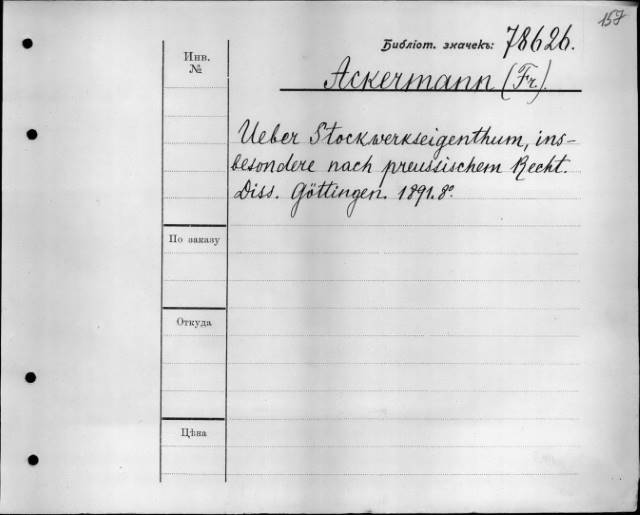 157
Библіот. значекъ: 78626.
Инв.
№
Ackermann (Fr.).
Ueber Stockwerkseigenthum, ins-
besondere nach preussischem Recht.
Diss. Göttingen. 1891. 8º.
По заказу
Откуда
Цѣна